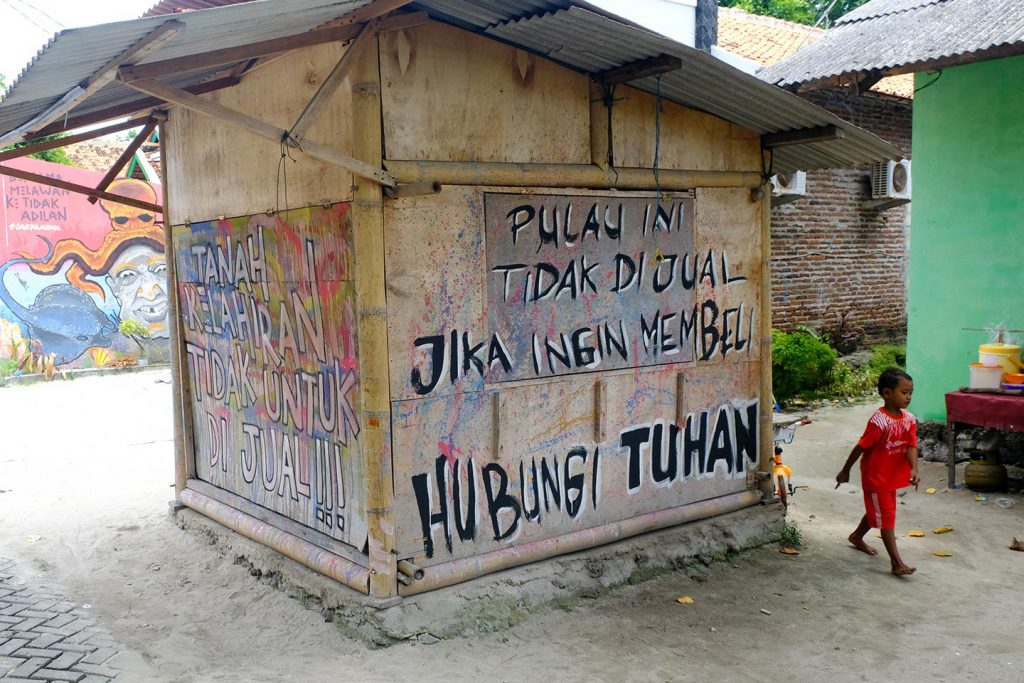 MELAWAN
KE TIDAK
ADILAN
TANAH
KELAHIRAN
TIDAK UNTUK
DI JUAL!!!
PULAU INI
TIDAK DI JUAL
JIKA INGIN MEMBELI
HUBUNGI TUHAN